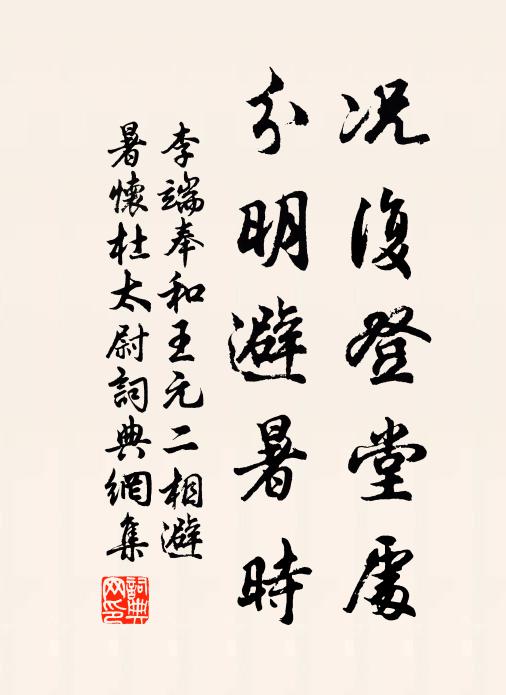 况復登堂處
分明避暑時
李端奉和王元二相避
暑懷杜太尉詞典網集
詞典
网印